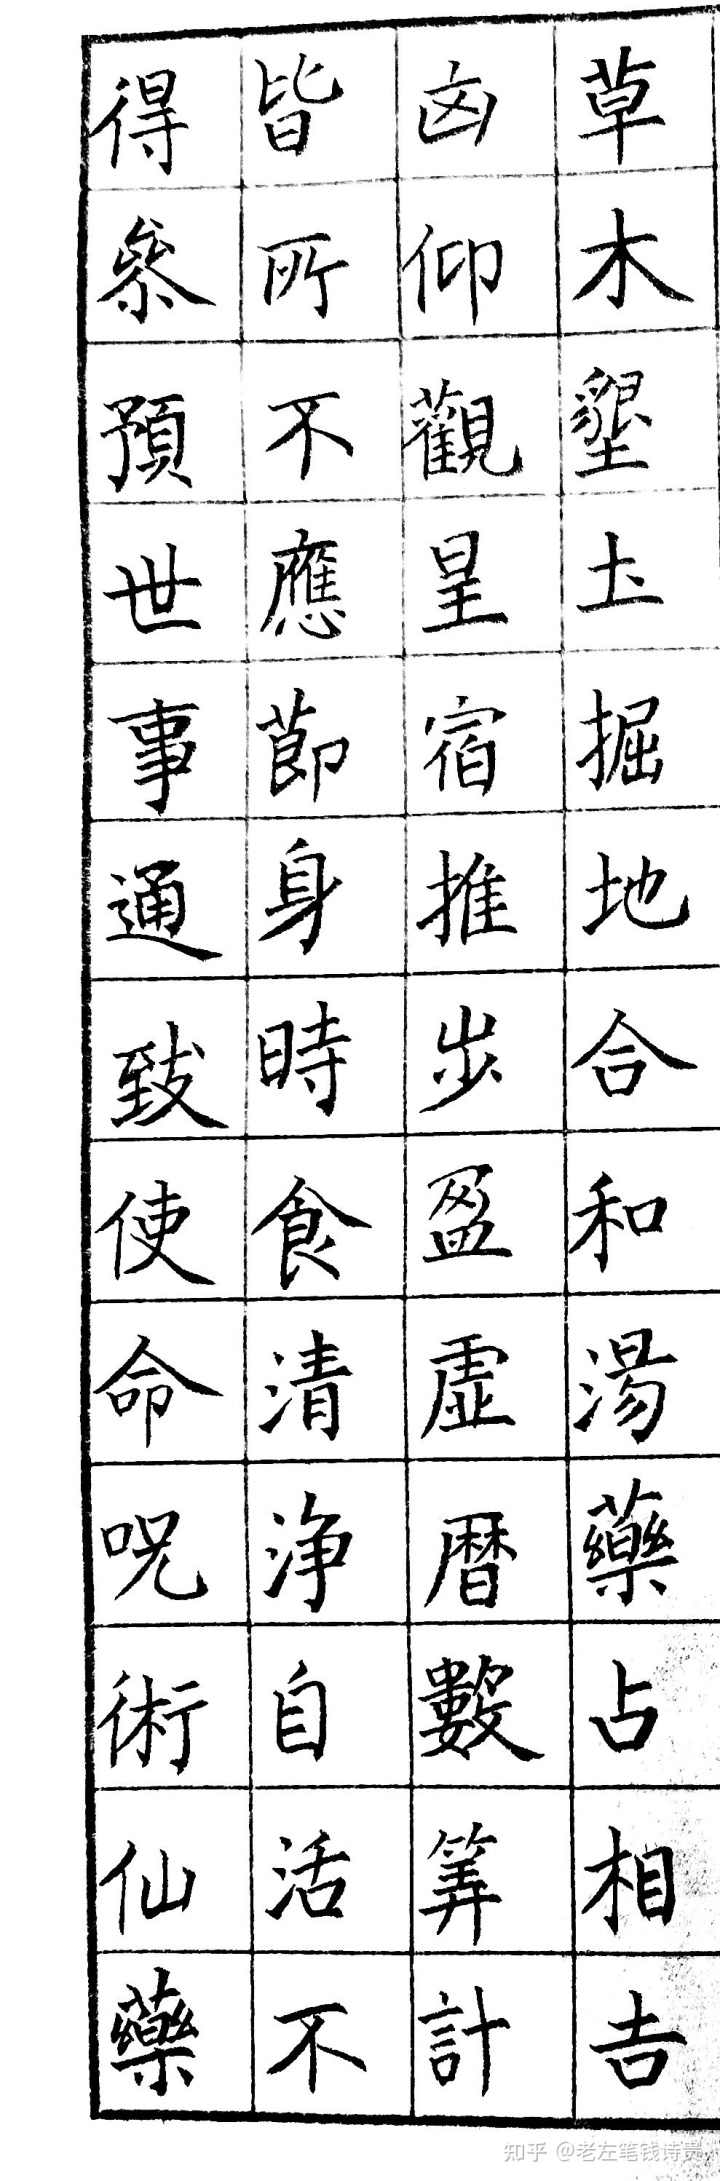 草木墾土掘地合和湯藥占相吉
凶仰觀星宿推步盈虛曆數算計
皆所不應節身時食清淨自活不
得參預世事通致使命呪術仙藥
知乎 @老左笔钱诗贵